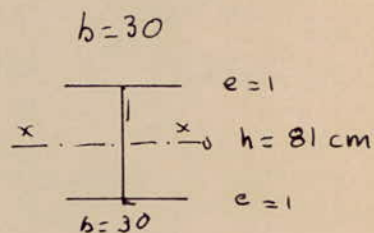 b=30
e=1
x x h=81 cm
e=1
b=30